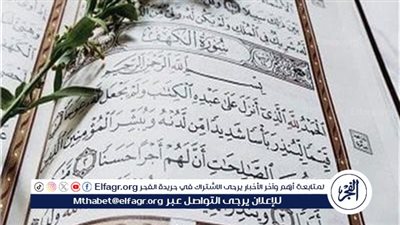 سُورَةُ الْكَهْفِ
بِسْمِ اللَّهِ الرَّحْمَٰنِ الرَّحِيمِ
الْحَمْدُ لِلَّهِ الَّذِي أَنزَلَ عَلَىٰ عَبْدِهِ الْكِتَٰبَ وَلَمْ يَجْعَل
قَيِّمًا لِّيُنذِرَ بَأْسًا شَدِيدًا مِّن لَّدُنْهُ وَيُبَشِّرَ الْمُؤْمِنِينَ
الصَّٰلِحَٰتِ أَنَّ لَهُمْ أَجْرًا حَسَنًا
لمتابعة أهم وآخر الأخبار يرجى الاشتراك في جريدة الفجر Elfagr.org
للإعلان يرجى التواصل عبر Mthabet@elfagr.org
الفجر